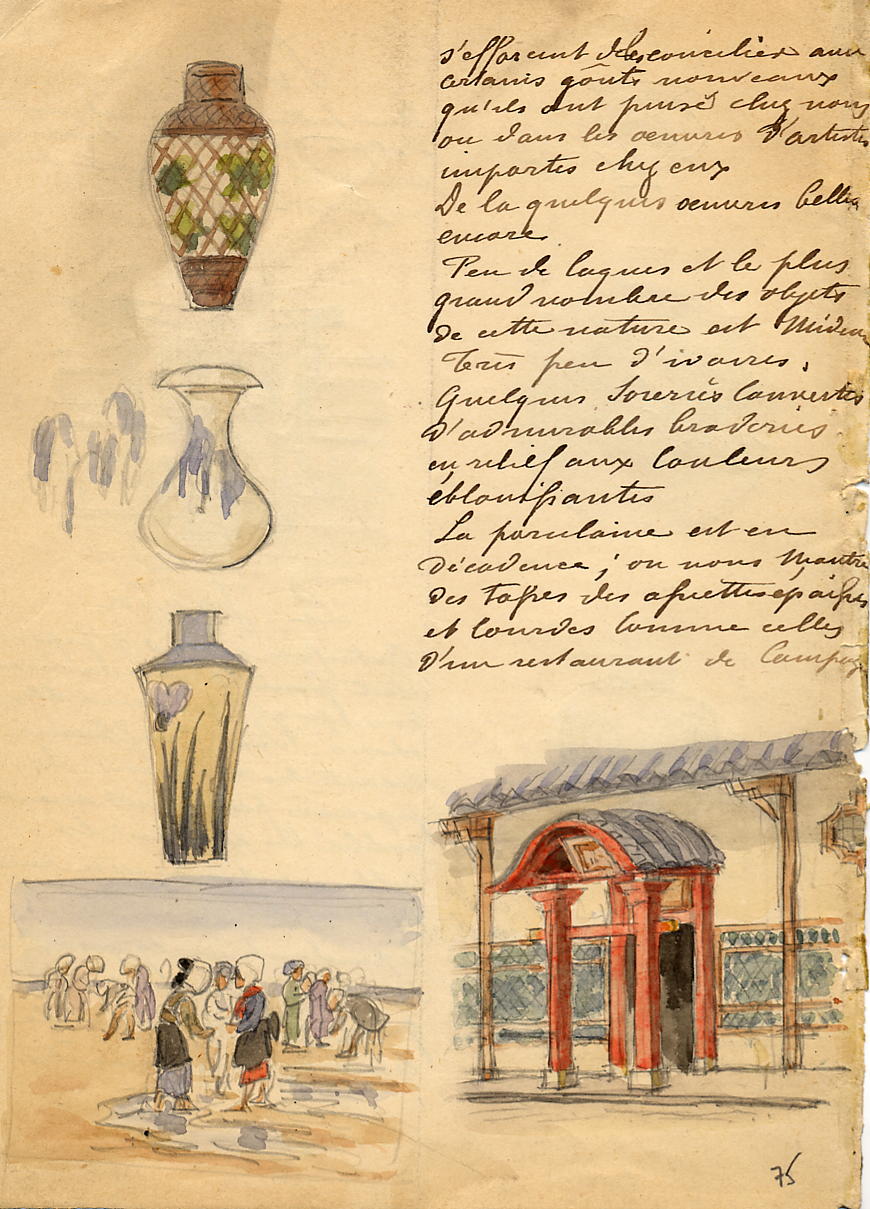 s'efforcent de les concilier avec
certains goûts nouveaux
qu'ils ont puisé chez nous
ou dans les oeuvres d'artistes
importes chez eux
De la quelques oeuvres belles
encore.
Peu de laques et le plus
grand nombre des objets
de cette nature est
Très peu d'ivoires.
Quelques Soieries couvertes
d'admirables broderies
en relief aux couleurs
éblouissantes
La porcelaine est en
décadence ; on nous montre
des tasses des assiettes épaisses
et lourdes comme celles
d'un restaurant de
75